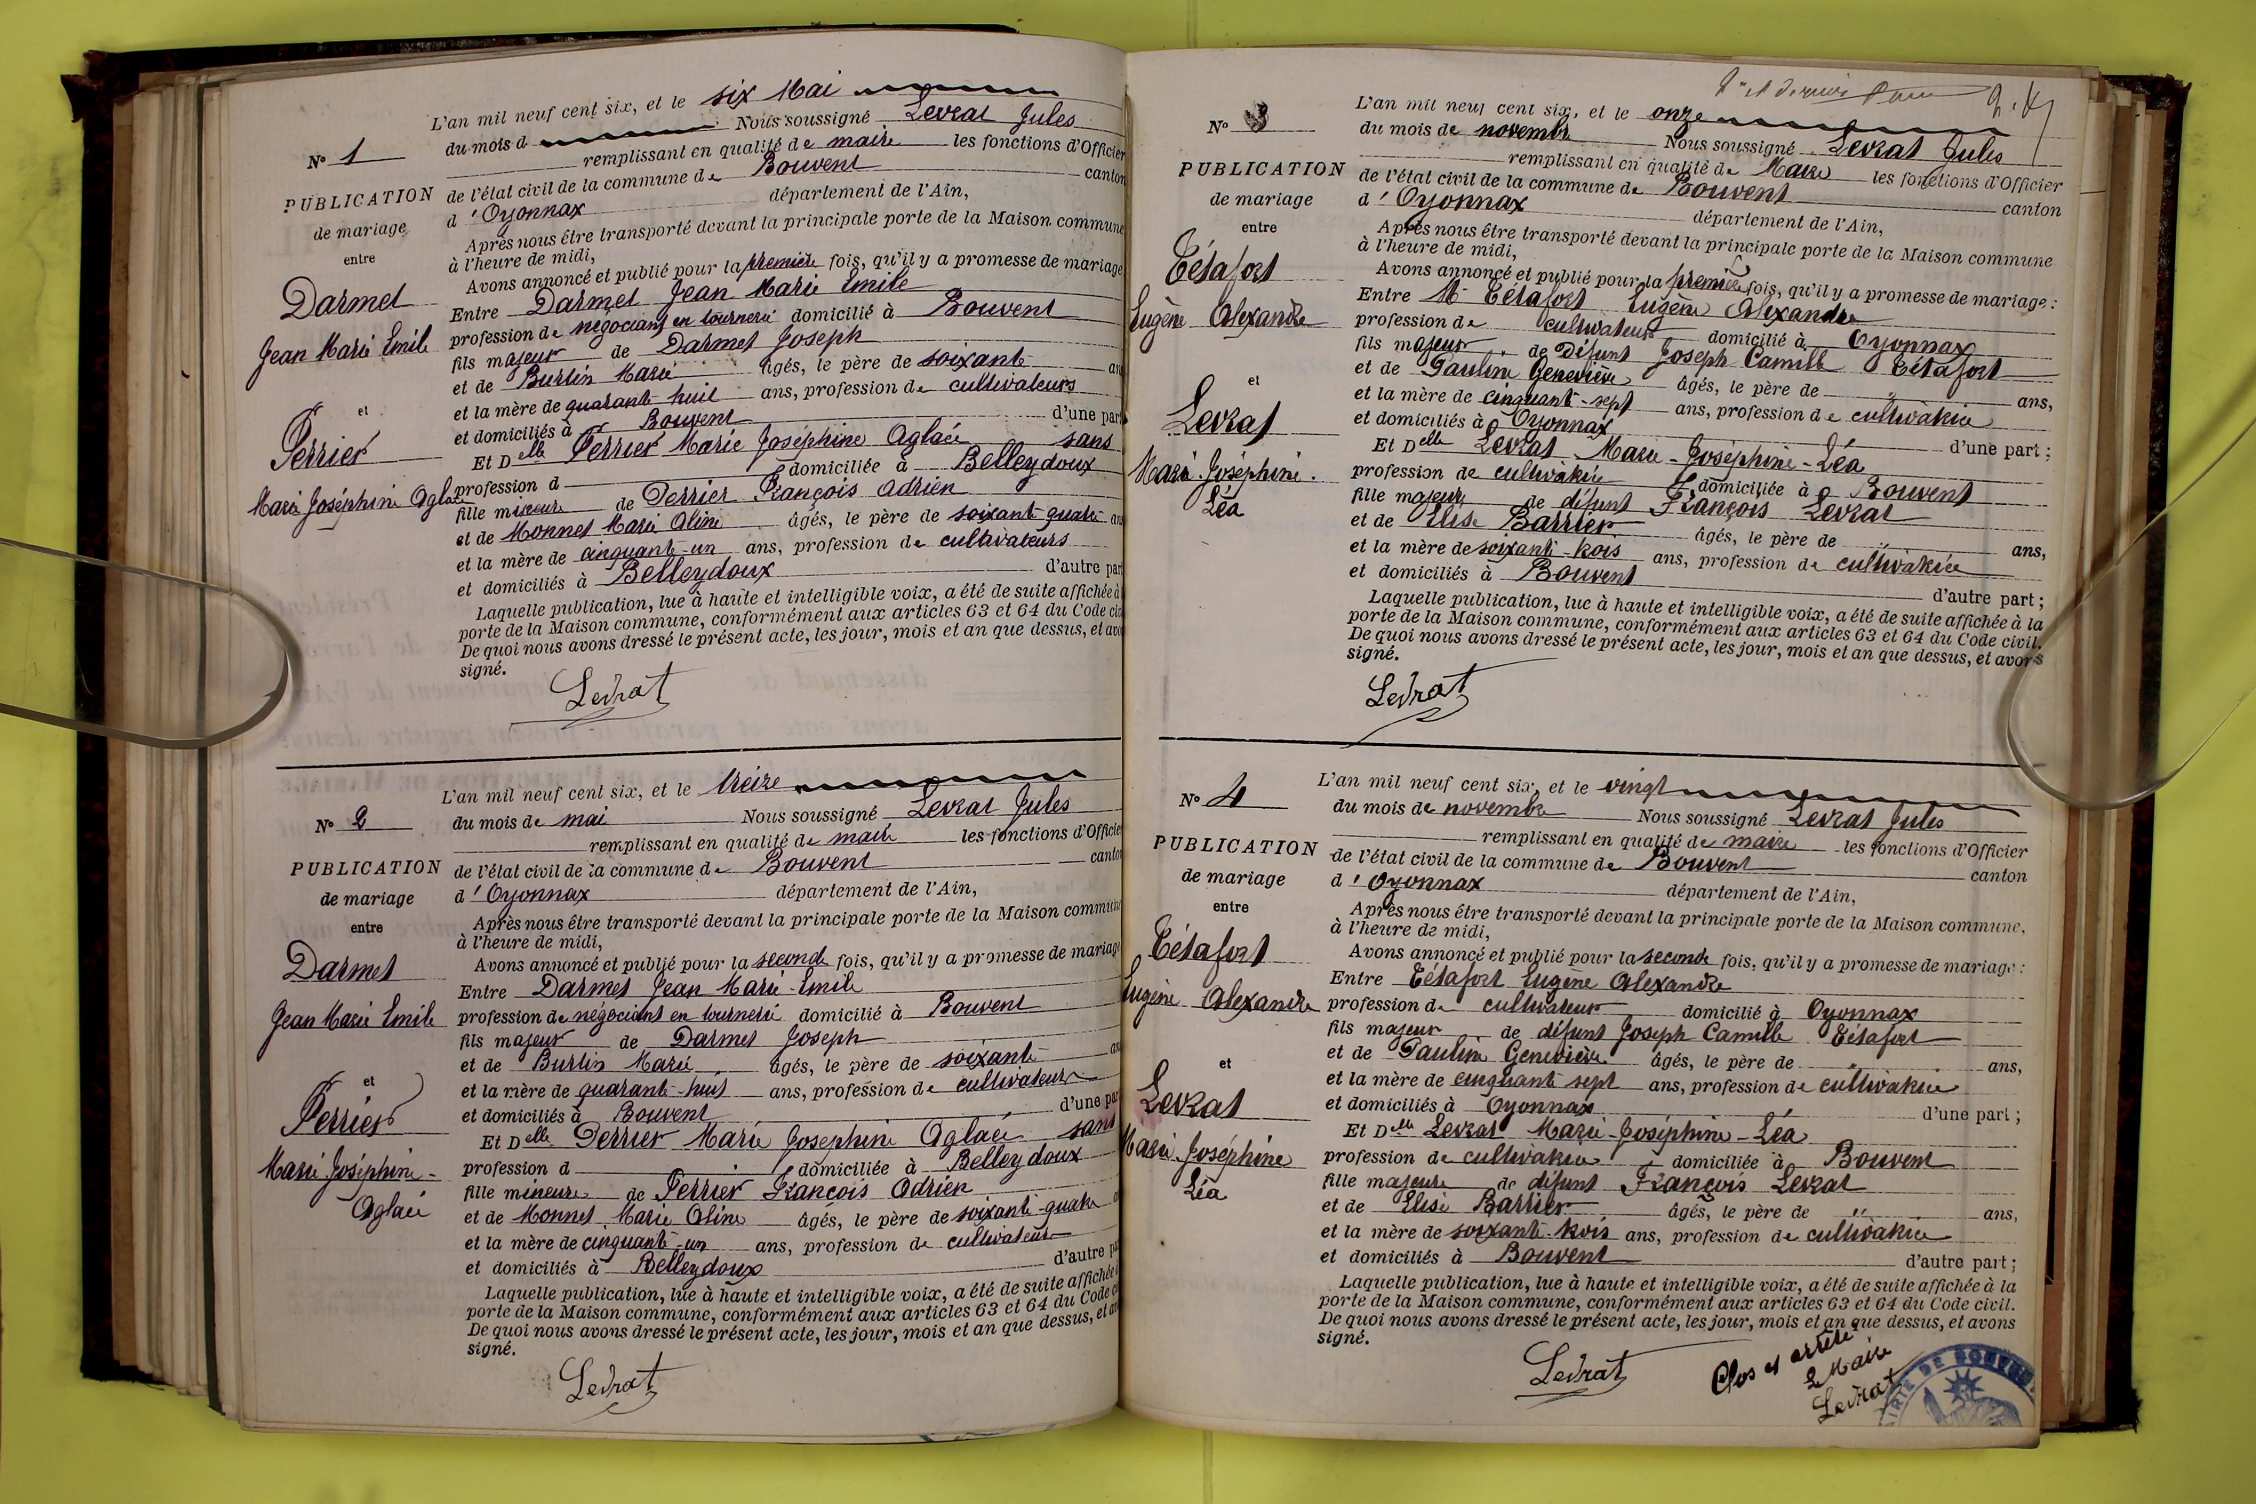 L'an mil neuf cent six, et le six Mai
du mois d Nous soussigné Levrat Jules
N° 1
remplissant en qualité de maire les fonctions d'Officier
PUBLICATION
de mariage
entre
de l'état civil de la commune de Bouvent canton
d'Oyonnax département de l'Ain,
Après nous être transporté devant la principale porte de la Maison commune
à l'heure de midi,
Avons annoncé et publié pour la première fois, qu'il y a promesse de mariage
Darmet
Jean Marie Emile
et
Perrier
Marie Joséphine Aglaé
Entre Darmet Jean Marie Emile
profession de négociant en tournerie domicilié à Bouvent
fils majeur de Darmet Joseph
et de Burlin Marie âgés, le père de soixante an
et la mère de quarante huit ans, profession de cultivateurs
et domiciliés à Bouvent d'une part
Et Delle Perrier Marie Joséphine Aglaé sans
profession d domiciliée à Belleydoux
fille mineure de Perrier François Adrien
et de Monnet Marie Aline âgés, le père de soixante quatre ans
et la mère de cinquante-un ans, profession de cultivateurs
et domiciliés à Belleydoux d'autre par
Laquelle publication, lue à haute et intelligible voix, a été de suite affichée à
porte de la Maison commune, conformément aux articles 63 et 64 du Code civ
De quoi nous avons dressé le présent acte, les jour, mois et an que dessus, et avo
signé.
Levrat
L'an mil neuf cent six, et le treize
du mois de mai Nous soussigné Levrat Jules
N° 2
remplissant en qualité de maire les fonctions d'Officie
PUBLICATION
de mariage
entre
de l'état civil de la commune de Bouvent canton
d'Oyonnax département de l'Ain,
Après nous être transporté devant la principale porte de la Maison commune
à l'heure de midi,
Avons annoncé et publié pour la seconde fois, qu'il y a promesse de mariage
Darmet
Jean Marie Emile
et
Perrier
Marie Joséphine-
Aglaé
Entre Darmet Jean Marie-Emile
profession de négociant en tournerie domicilié à Bouvent
fils majeur de Darmet Joseph
et de Burlin Marie âgés, le père de soixante an
et la mère de quarante-huit ans, profession de cultivateurs
et domiciliés à Bouvent d'une par
Et Delle Perrier Marie Josephine Aglaé sans
profession d domiciliée à Belleydoux
fille mineure de Perrier François Adrien
et de Monnet Marie Aline âgés, le père de soixante-quatre
et la mère de cinquante-un ans, profession de cultivateurs
et domiciliés à Belleydoux d'autre pa
Laquelle publication, lue à haute et intelligible voix, a été de suite affichée
porte de la Maison commune, conformément aux articles 63 et 64 du Code c
De quoi nous avons dressé le présent acte, les jour, mois et an que dessus, et av
signé.
Levrat
et dernier
L'an mil neuf cent six, et le onze
du mois de novembre Nous soussigné Levrat Jules
N° 3
remplissant en qualité de Maire les fonctions d'Officier
PUBLICATION
de mariage
entre
de l'état civil de la commune de Bouvent canton
d'Oyonnax département de l'Ain,
Après nous être transporté devant la principale porte de la Maison commune
à l'heure de midi,
Avons annoncé et publié pour la première fois, qu'il y a promesse de mariage :
Tétafort
Eugène Alexandre
et
Levrat
Marie Joséphine.
Léa
Entre Mr Tétafort Eugène Alexandre
profession de cultivateur domicilié à Oyonnax
fils majeur de Défunt Joseph Camille Tétafort
et de Pauline Geneviève âgés, le père de " ans,
et la mère de cinquante-sept ans, profession de cultivatrice
et domiciliés à Oyonnax d'une part ;
Et Delle Levrat Marie-Joséphine-Léa
profession de cultivatrice domiciliée à Bouvent
fille majeure de défunt François Levrat
et de Elise Barrier âgés, le père de " ans,
et la mère de soixante-trois ans, profession de cultivatrice
et domiciliés à Bouvent d'autre part ;
Laquelle publication, lue à haute et intelligible voix, a été de suite affichée à la
porte de la Maison commune, conformément aux articles 63 et 64 du Code civil.
De quoi nous avons dressé le présent acte, les jour, mois et an que dessus, et avons
signé.
Levrat
L'an mil neuf cent six, et le vingt
du mois de novembre Nous soussigné Levrat Jules
N° 4
remplissant en qualité de maire les fonctions d'Officier
PUBLICATION
de mariage
entre
de l'état civil de la commune de Bouvent canton
d'Oyonnax département de l'Ain,
Après nous être transporté devant la principale porte de la Maison commune,
à l'heure de midi,
Avons annoncé et publié pour la seconde fois, qu'il y a promesse de mariage :
Tétafort
Eugène Alexandre
et
Levrat
Marie Joséphine
Léa
Entre Tétafort Eugène Alexandre
profession de cultivateur domicilié à Oyonnax
fils majeur de défunt Joseph Camille Tétafort
et de Pauline Geneviève âgés, le père de " ans,
et la mère de cinquante sept ans, profession de cultivatrice
et domiciliés à Oyonnax d'une part ;
Et Delle Levrat Marie-Joséphine-Léa
profession de cultivatrice domiciliée à Bouvent
fille majeure de défunt François Levrat
et de Elise Barrier âgés, le père de " ans,
et la mère de soixante-trois ans, profession de cultivatrice
et domiciliés à Bouvent d'autre part ;
Laquelle publication, lue à haute et intelligible voix, a été de suite affichée à la
porte de la Maison commune, conformément aux articles 63 et 64 du Code civil.
De quoi nous avons dressé le présent acte, les jour, mois et an que dessus, et avons
signé.
Levrat
Clos et arrêté
Le Maire
Levrat
MAIRIE DE BOUVENT